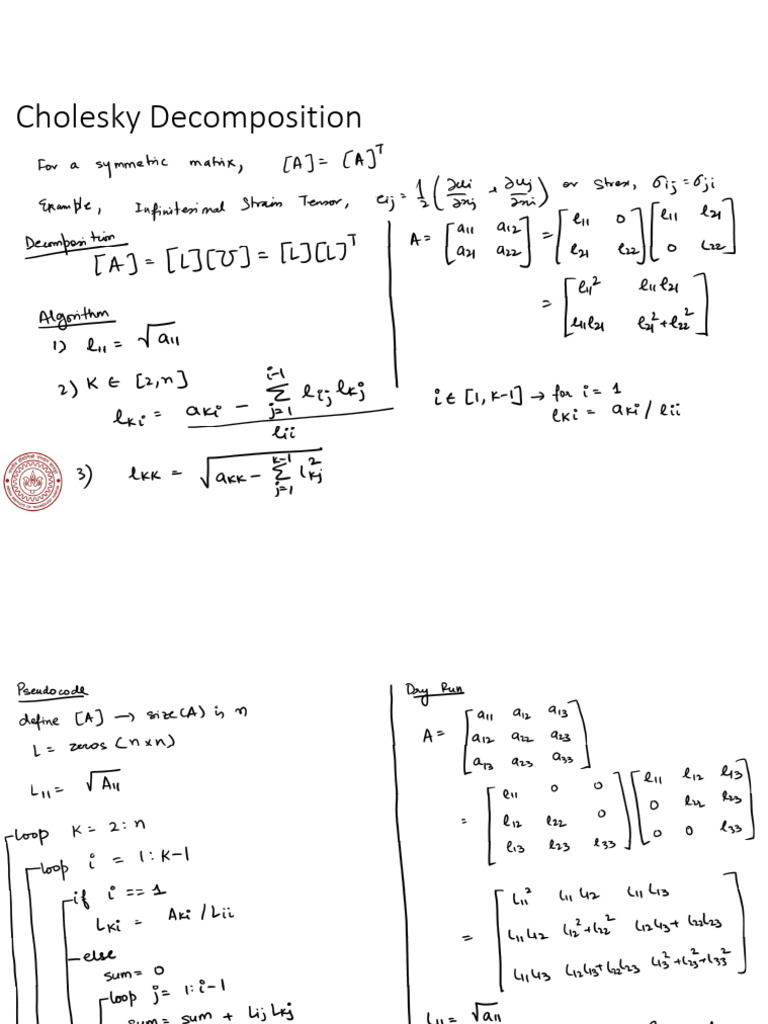 Cholesky Decomposition
For a symmetric matrix, [A] = [A]^T
Example, Infinitesimal Strain Tensor, e_ij = 1/2 (∂u_i/∂x_j + ∂u_j/∂x_i) or stress, σ_ij = σ_ji
Decomposition
[A] = [L][U] = [L][L]^T
A = [a11 a12; a21 a22] = [l11 0; l21 l22] [l11 l21; 0 l22]
= [l11^2 l11 l21; l11 l21 l21^2 + l22^2]
Algorithm
1) l11 = √a11
2) K ∈ [2, n]
l_Ki = (a_Ki - Σ_{j=1}^{i-1} l_ij l_Kj) / l_ii
i ∈ [1, K-1] → for i = 1
l_Ki = a_Ki / l_ii
3) l_KK = √(a_KK - Σ_{j=1}^{K-1} l_Kj^2)
Pseudocode
define [A] → size(A) is n
L = zeros (n×n)
L11 = √A11
loop K = 2:n
loop i = 1:K-1
if i == 1
L_Ki = A_Ki / L_ii
else
sum = 0
loop j = 1:i-1
sum = sum + L_ij L_Kj
Dry Run
A = [a11 a12 a13; a12 a22 a23; a13 a23 a33]
= [l11 0 0; l12 l22 0; l13 l23 l33] [l11 l12 l13; 0 l22 l23; 0 0 l33]
= [L11^2 L11 L12 L11 L13; L11 L12 L12^2 + L22^2 L12 L13 + L22 L23; L11 L13 L12 L13 + L22 L23 L13^2 + L23^2 + L33^2]
L11 = √a11